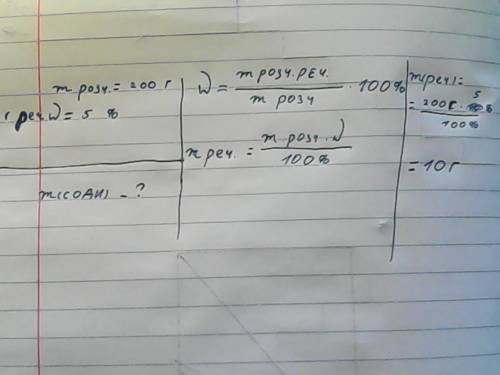 m розч. = 200 г
г реч. W = 5 %
m(соди) - ?
W = m розч. реч. / m розч · 100%
m реч. = m розч. W / 100%
m(реч.)=
= 200г · 5% / 100%
= 10 г